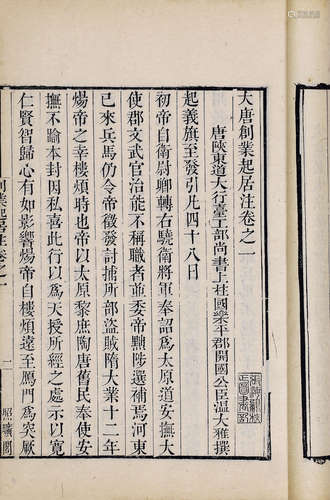 大唐創業起居注卷之一
唐陝東道大行臺工部尚書上柱國樂平郡開國公臣溫大雅撰
起義旗至發引凡四十八日
初帝自衛尉卿轉右驍衛將軍奉詔為太原道安撫大
使郡文武官治能不稱職者並委帝黜陟選補焉河東
已來兵馬仍令帝徵發討捕所部盜賊隋大業十二年
煬帝之幸樓煩時也帝以太原黎庶陶唐舊民奉使安
撫不踰本封因私喜此行以為天授所經之處示以寬
仁賢智歸心有如影響煬帝自樓煩遠至鴈門為突厥
創業起居注卷之一
一
照曠閣